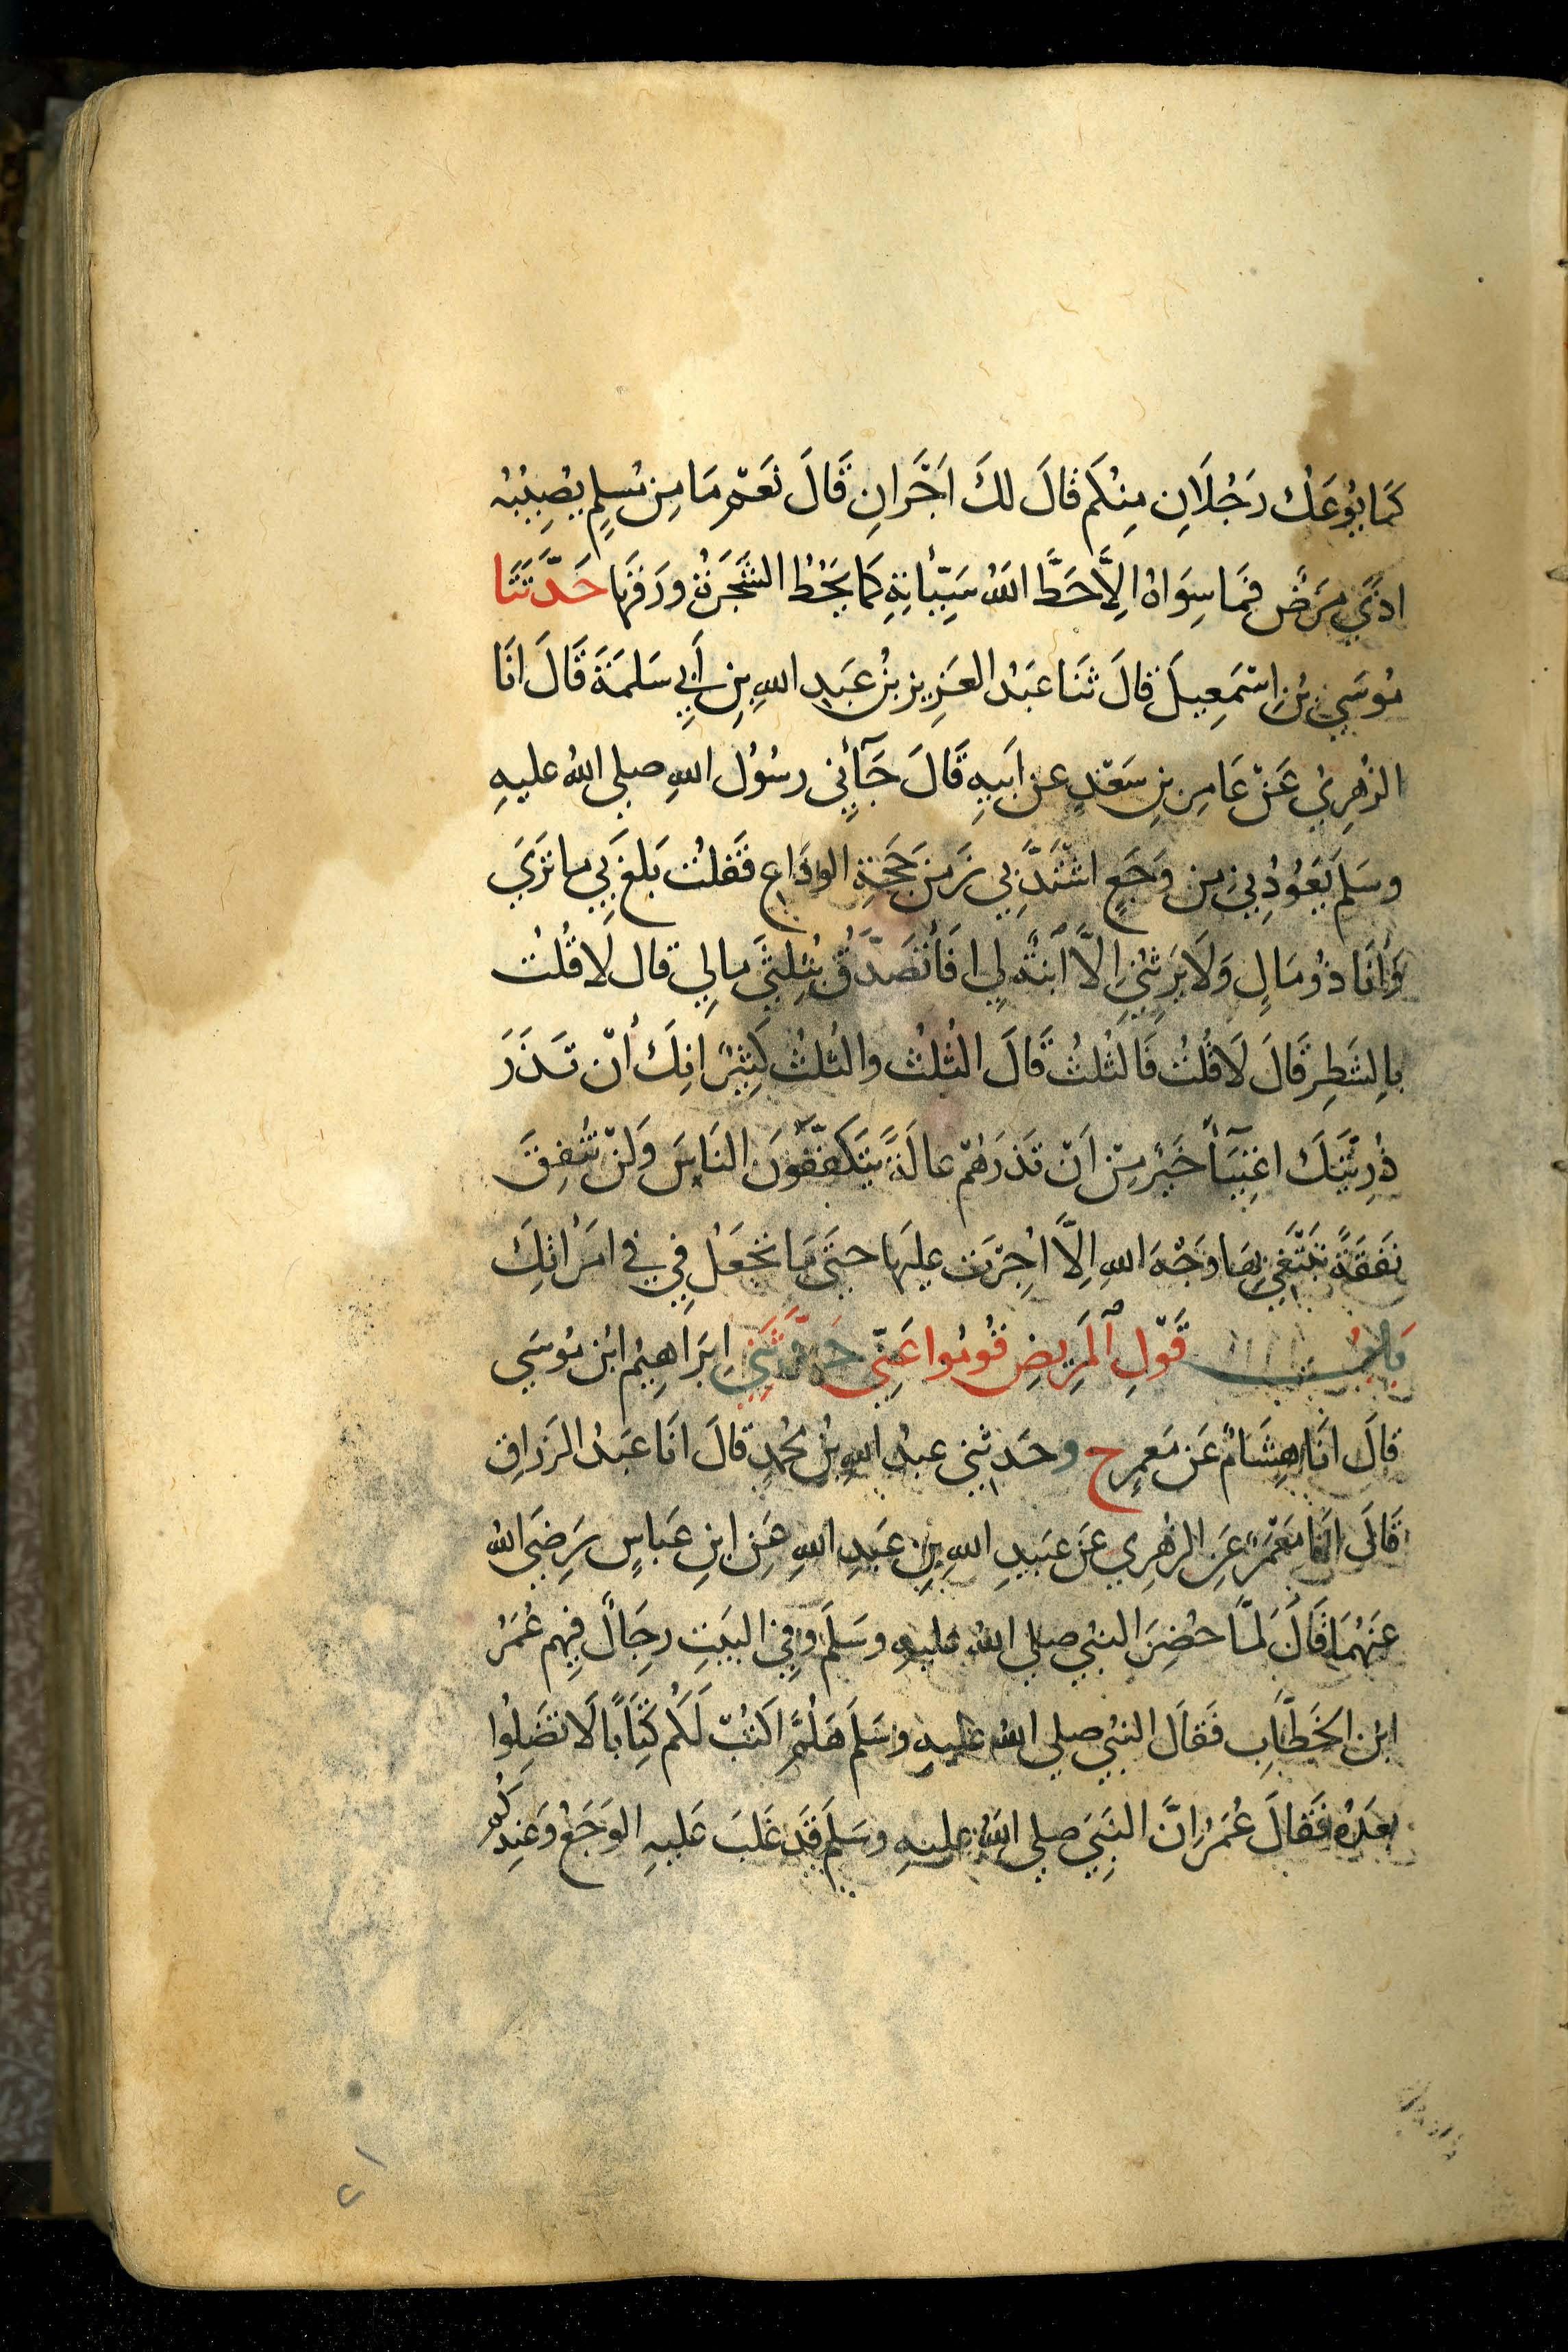 كَمَا يُوعَكُ رَجُلَانِ مِنْكُم قالَ لكَ اَجْرَانِ قَالَ نَعَمْ مَا مِنْ مُسلِمٍ يُصِيْبُه
اذًى مَرَضٌ فَمَا سِوَاهُ الِاَّ حَطَّ اللهُ سَيِّئَاتِهِ كَمَا يَحُطُّ الشَّجَرَةُ ورَقَهَا حَدَّثَنَا
مُوسَى بْنُ اِسْمَعِيلَ قالَ ثَنَا عَبْدُ العَزِيزِ بْنُ عَبدِ اللهِ بنِ أَبِي سَلَمَةَ قَالَ انَا
الزُهرِي عَنْ عَامِرِ بنِ سَعْدٍ عن اَبيهِ قَالَ جَآئِني رسُوُل اللهِ صلى اللهُ عليهِ
وسَلمَ يَعُوْدُنِي مِن وَجَعٍ اشْتَدَّ بِي زَمَنَ حَجَّةِ الوِدَاعِ فَقلتُ بَلغَ بِي ما تَرَى
وَأنَا ذُو مَالٍ وَلَا يَرِثُنِي اِلاَّ اُبنَةٌ لِي افَأتَصَدَّقُ بثُلِثَي مالِي قال لَا قُلتُ
بالِشَطِر قَالَ لَا قُلتُ فَالثُلثُ قَالَ الثُلُث والثُلثُ كَثِيْرٌ انِكَ أن تَذَرَ
ذُرِيَّتَكَ اغنِيَآءَ خَيْر مِنْ اَنْ تَذَرَهُمْ عالَةً يَتَكَفَّفُونَ النَاسَ وَلَنْ تُنفِقَ
نَفَقَةً تَبْتَغِي بِهَا وَجْهَ اللهِ اِلاَّ اُجِرْتَ عليَها حتَى مَا تَجْعَلُ فِي في امَرَاتِكَ
بَابُ قَوْلِ اْلمَرِيضِ قُومُوا عَنِّي حَدَّثَنِي اِبرَاهِيْم ابْن مُوسَى
قالَ انَا هِشَامُ عَن مَعمرٍ ح وحَدثني عبدُ اللهِ بْنُ مُحمدٍ قالَ انَا عَبدُ الرَزاقِ
قَالَ انَا مَعْمَرٌ عَنِ الزهِري عَن عبَيدِ اللهِ بِنِ عَبدِ اللهِ عَنِ ابنِ عَباسٍ رَضِىَ اللهُ
عَنهُمَا قَالَ لَمَّا حُضِرَ النبي صلى اللهُ عليهِ وسَلَّمَ وفِي البَيتِ رِجَالٌ فِيهم عُمَرُ
ابْن الخَطَّابِ فَقالَ النبِّي صلى اللهُ عليهِ وسَلمَ هَلُمَّ اَكتُبْ لَكُم كِتَابًا لَا تَضِلُوا
بعَدُه فَقالَ عُمَرُ اِنَّ النَبِيَ صلى اللهُ عليهِ وسَلمَ قَد غَلبَ عَليهِ الوَجَعُ وَعِندكُم